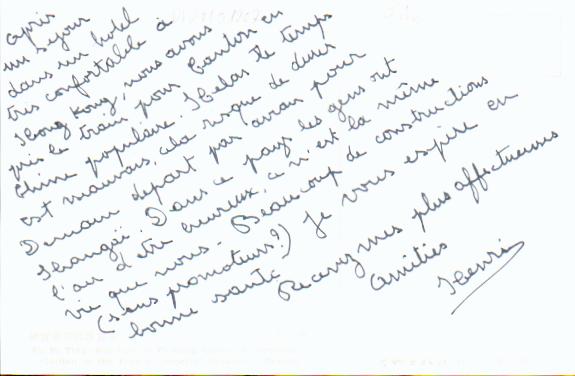 après
un séjour
dans un hotel
très confortable à
Hong Kong, nous avons
pris le train pour Canton en
Chine populaire. Helas le temps
est mauvais, cela risque de durer
Demain départ par avion pour
Shangaï. Dans ce pays les gens ont
l'air d'être heureux, ce n'est la même
vie que nous. Beaucoup de constructions
(sans promoteurs?) Je vous espère en
bonne santé
Recevez mes plus affectueuses
amitiés
Henri